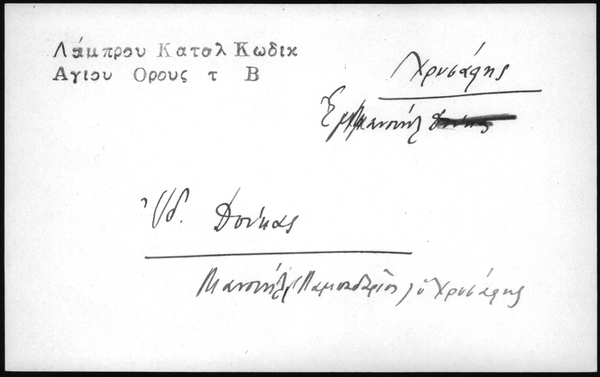 Λάμπρου Καταλ Κωδικ
Αγίου Ορους τ Β
Χρυσάφης
Ἐμμανουὴλ Δούκας
Ἰδ. Δούκας
Μανουὴλ ὁ Χρυσάφης